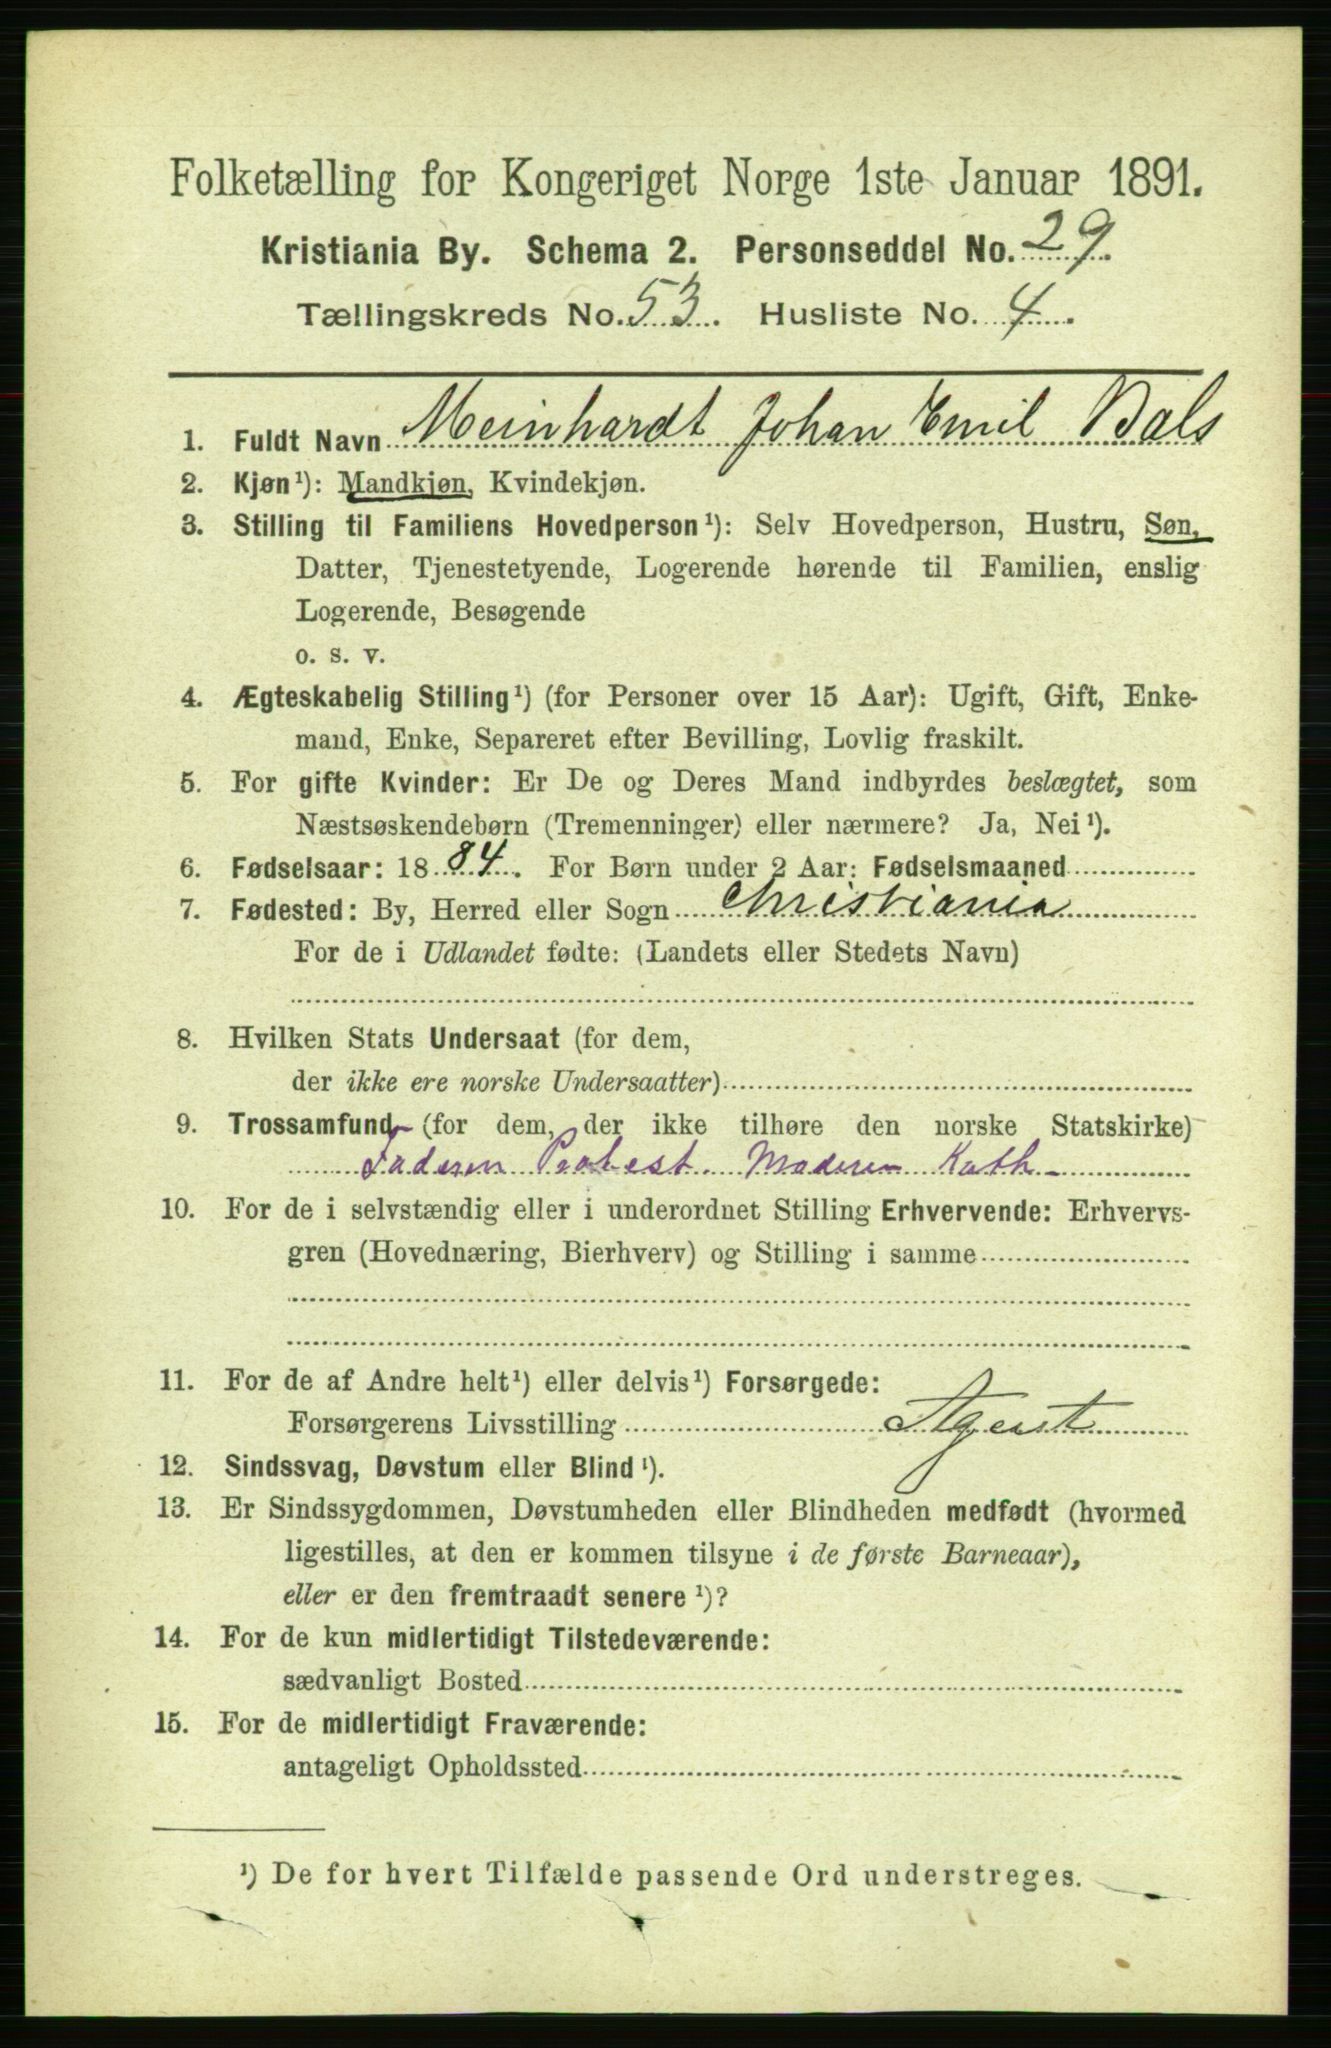 Folketælling for Kongeriget Norge 1ste Januar 1891.
Kristiania By. Schema 2. Personseddel No. 29.
Tællingskreds No. 53. Husliste No. 4.
1. Fuldt Navn Meinhardt Johan Emil Bals
2. Kjøn¹): Mandkjøn, Kvindekjøn.
3. Stilling til Familiens Hovedperson¹): Selv Hovedperson, Hustru, Søn,
Datter, Tjenestetyende, Logerende hørende til Familien, enslig
Logerende, Besøgende
o. s. v.
4. Ægteskabelig Stilling¹) (for Personer over 15 Aar): Ugift, Gift, Enke-
mand, Enke, Separeret efter Bevilling, Lovlig fraskilt.
5. For gifte Kvinder: Er De og Deres Mand indbyrdes beslægtet, som
Næstsøskendebørn (Tremenninger) eller nærmere? Ja, Nei¹).
6. Fødselsaar: 1884. For Børn under 2 Aar: Fødselsmaaned
7. Fødested: By, Herred eller Sogn Christiania
For de i Udlandet fødte: (Landets eller Stedets Navn)
8. Hvilken Stats Undersaat (for dem,
der ikke ere norske Undersaatter)
9. Trossamfund (for dem, der ikke tilhøre den norske Statskirke)
Faderen Protest. Moderen Kath
10. For de i selvstændig eller i underordnet Stilling Erhvervende: Erhvervs-
gren (Hovednæring, Bierhverv) og Stilling i samme
11. For de af Andre helt¹) eller delvis¹) Forsørgede:
Forsørgerens Livsstilling Agent
12. Sindssvag, Døvstum eller Blind¹).
13. Er Sindssygdommen, Døvstumheden eller Blindheden medfødt (hvormed
ligestilles, at den er kommen tilsyne i de første Barneaar),
eller er den fremtraadt senere¹)?
14. For de kun midlertidigt Tilstedeværende:
sædvanligt Bosted
15. For de midlertidigt Fraværende:
antageligt Opholdssted
¹) De for hvert Tilfælde passende Ord understreges.